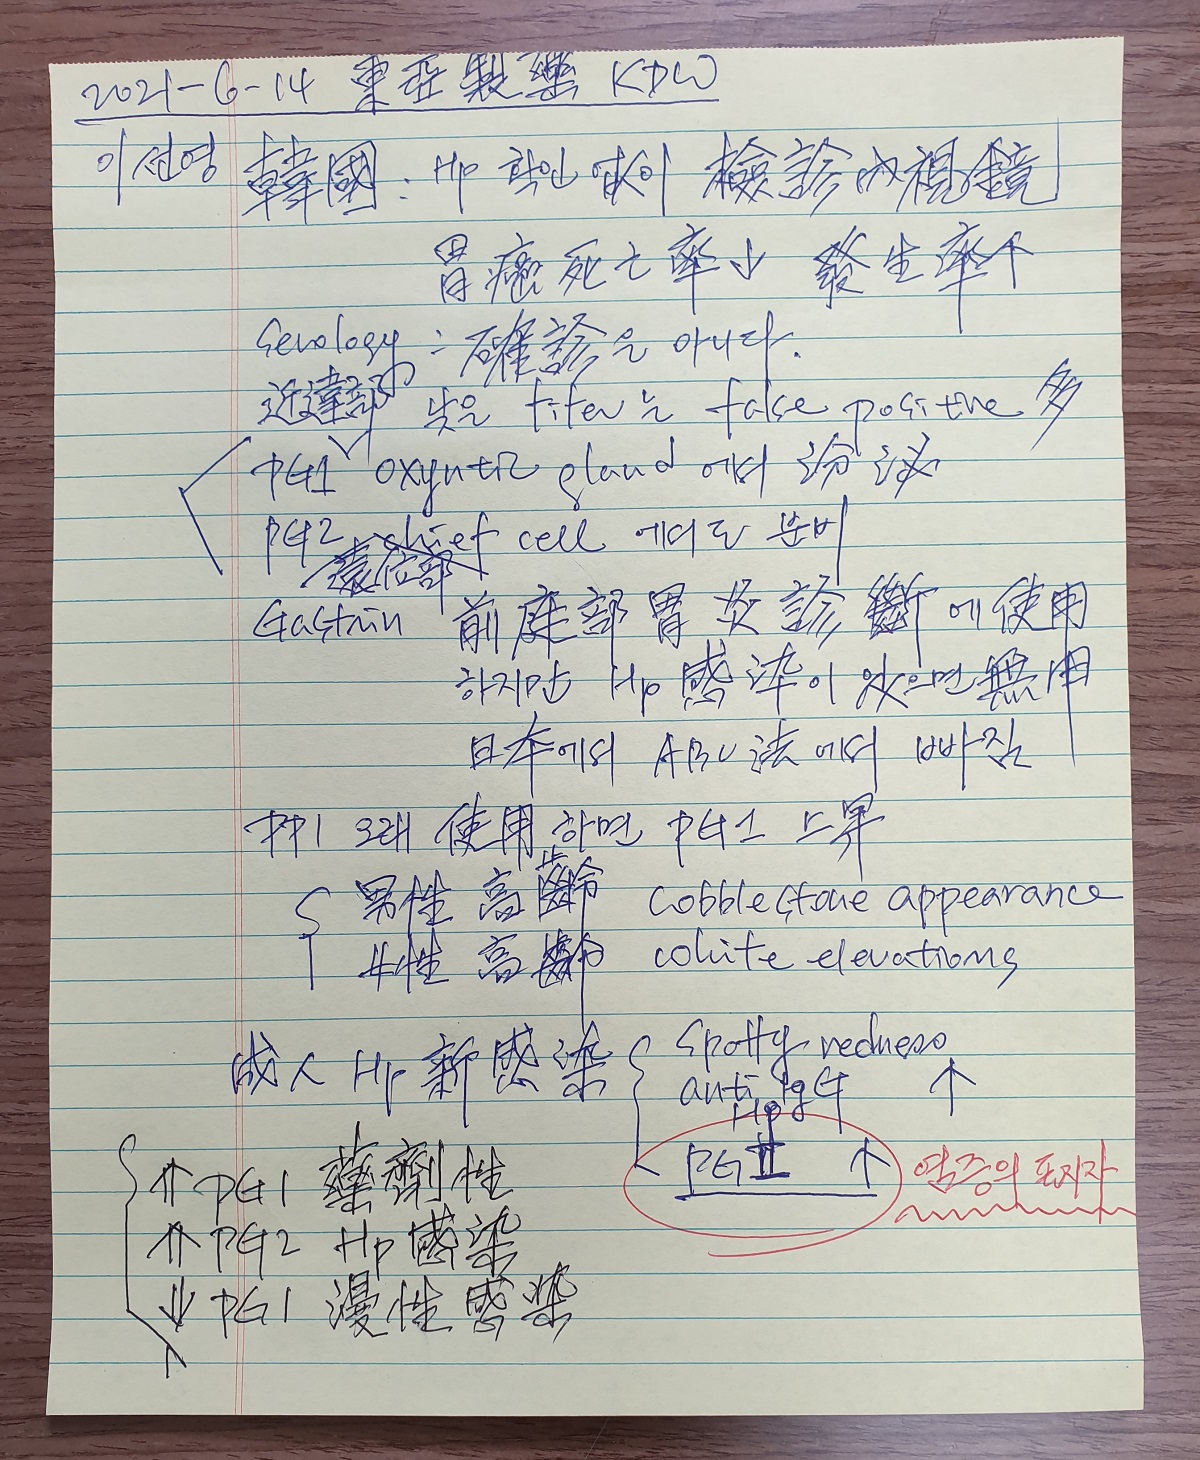 2021-6-14 東亞製藥 KDW
이선영 韓國 : Hp 확인 없이 檢診內視鏡
胃癌死亡率↓ 發生率↑
Serology : 確診은 아니다.
낮은 titer는 false positive 多
近違部
PG1 oxyntic gland 에서 分泌
PG2 chief cell 에서도 분비
遠位部
Gastrin 前庭部胃炎診斷에 使用
하지만 Hp 感染이 있으면 無用
日本에서 ABC法에서 빠짐
PPI 오래 使用하면 PG1 上昇
男性 高齡 cobblestone appearance
女性 高齡 white elevations
成人 Hp 新感染 spotty redness
anti Hp IgG ↑
PG II ↑ 염증의 표지자
⇑ PG1 藥劑性
⇑ PG2 Hp 感染
↓ PG1 漫性感染